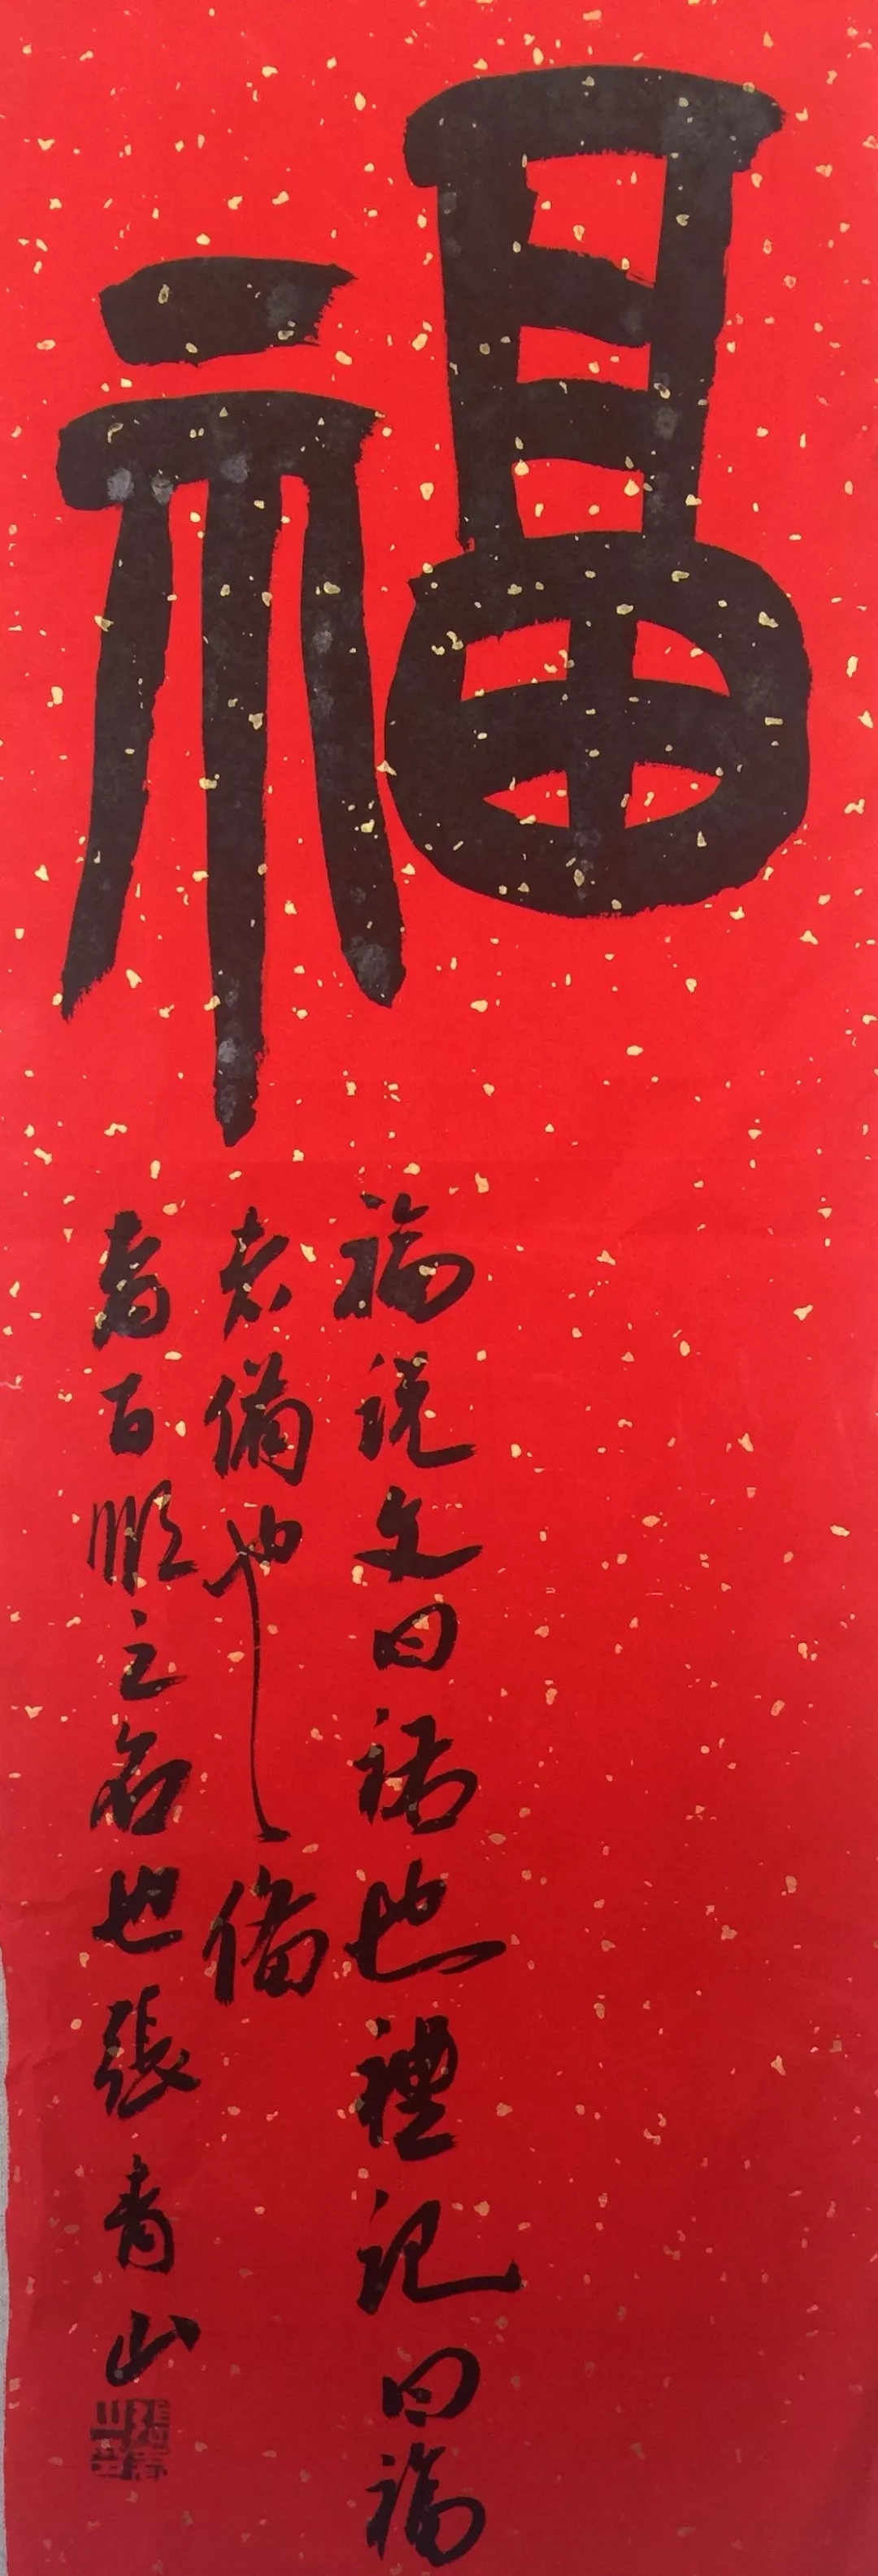 福
福說文曰祐也禮記曰福
者備也備
者百順之名也張青山